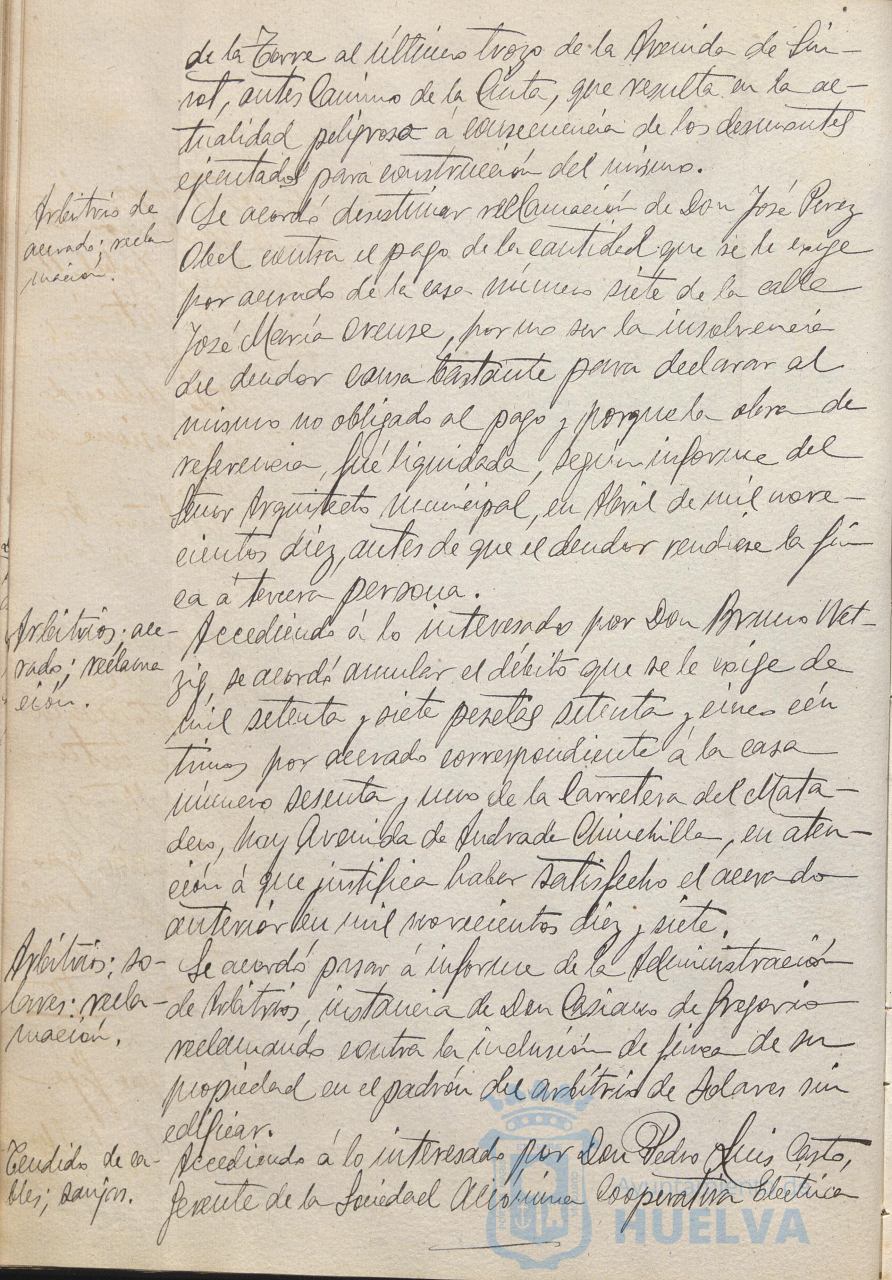 de la Torre al último trozo de la Avenida de Sun-
rot, antes Camino de la Cinta, que resulta en la ac-
tualidad peligrosa á consecuencia de los desmontes
ejecutados para construcción del mismo.
Arbitrios de
acerado; recla
mación.
Se acordó desestimar reclamación de Don José Perez
Abel contra el pago de la cantidad que se le exige
por acerado de la casa número siete de la calle
José María Orense, por no ser la insolvencia
del deudor causa bastante para declarar al
mismo no obligado al pago y porque la obra de
referencia, fué liquidada, según informe del
Señor Arquitecto municipal, en Abril de mil nove-
cientos diez, antes de que el deudor vendiese la fin
ca á tercera persona.
Arbitrios; ace-
rado; reclama
ción.
Accediendo á lo interesado por Don Bruno Wet-
zig, se acordó anular el débito que se le exige de
mil setenta y siete pesetas setenta y cinco cén
timos por acerado correspondiente á la casa
número sesenta y uno de la Carretera del Mata-
dero, hoy Avenida de Andrade Chinchilla, en aten-
ción á que justifica haber satisfecho el acerado
anterior en mil novecientos diez y siete.
Arbitrios; so-
lares: recla-
mación.
Se acordó pasar á informe de la Administración
de Arbitrios, instancia de Don Casiano de Gregorio
reclamando contra la inclusión de finca de su
propiedad en el padrón del arbitrio de solares sin
edificar.
Tendido de ca-
bles; zanjas.
Accediendo á lo interesado por Don Pedro Luis Casto,
Gerente de la Sociedad Anónima Cooperativa Eléctrica
Ayuntamiento de
HUELVA